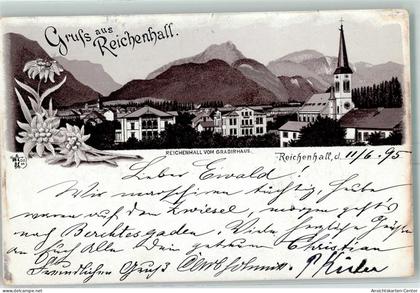 Gruß aus
Reichenhall.
REICHENHALL VOM GRADIRHAUS.
Reichenhall, d. 11/6. 95
Lieber Ewald!
Wir marschieren tüchtig, heute
waren auf den Zwiesel, morgen geht's
nach Berchtesgaden. Viele herzliche Grüße
an Euch Alle Dein getreuer Christian
Freundlichen Gruß
www.ansichtskarten-center.de
Ansichtskarten-Center